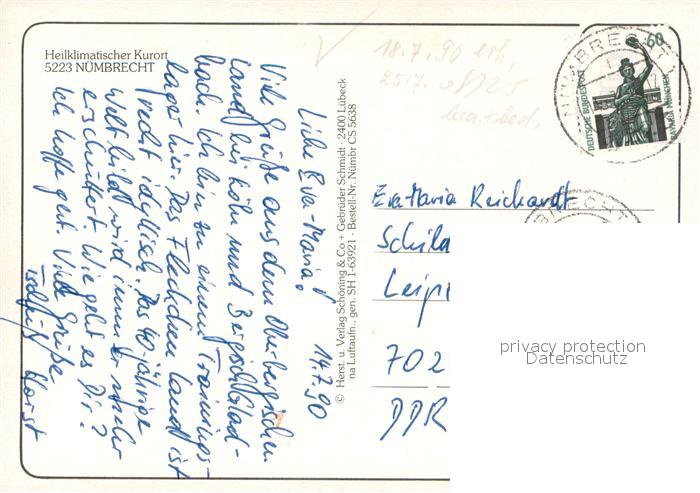 Heilklimatischer Kurort
5223 NÜMBRECHT
14.7.90
Liebe Eva-Maria!
Viele Grüße aus dem Oberbergischen
Land bei Köln und Bergisch Glad-
bach. Ich bin zu einem Trainings-
lager hier. Das Fleckchen Land ist
recht idyllisch. Das 40-jährige
Weltbild wird immer mehr
erschüttert. Wie geht es Dir?
Ich hoffe gut. Viele Grüße
Horst
© Herst. u. Verlag Schöning & Co + Gebrüder Schmidt · 2400 Lübeck
na Luftaufn., gen. SH 1-63921 · Bestell-Nr. Nümbr CS 5638
18.7.90 erh.
25.7.
60
DEUTSCHE BUNDESPOST
BAVARIA MÜNCHEN
NÜMBRECHT
MBRECHT
Eva-Maria Reichardt
Schil
Leipz
702
DDR
privacy protection
Datenschutz